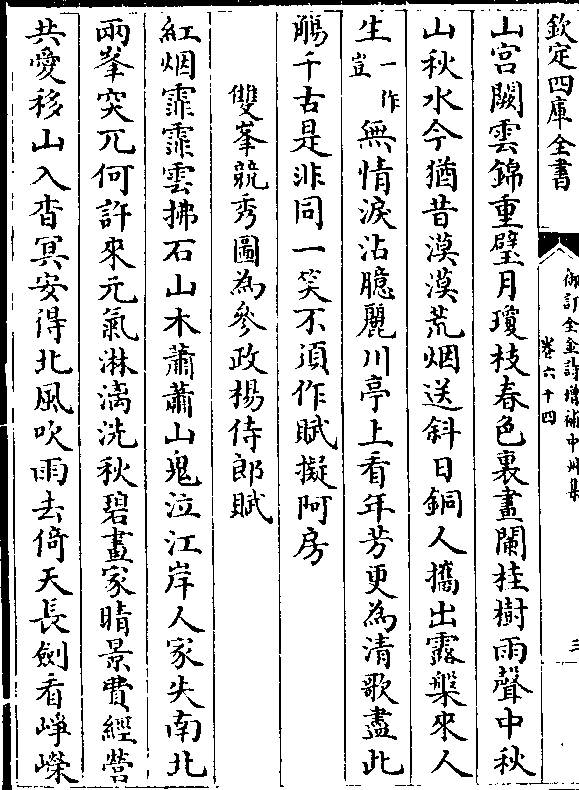 欽定四庫全書
御訂全金詩增補中州集
卷六十四
三
山宫闕雲錦重璧月瓊枝春色裏畫闌桂樹雨聲中秋
山秋水今猶昔漠漠荒烟送斜日銅人攜出露槃來人
生一作豈無情淚沾臆麗川亭上看年芳更為清歌盡此
觴千古是非同一笑不須作賦擬阿房
雙峯競秀圖為參政楊侍郎賦
紅烟霏霏雲拂石山木蕭蕭山鬼泣江岸人家失南北
兩峯突兀何許來元氣淋漓洗秋碧畫家晴景費經營
共愛移山入杳冥安得北風吹雨去倚天長劍看崢嶸